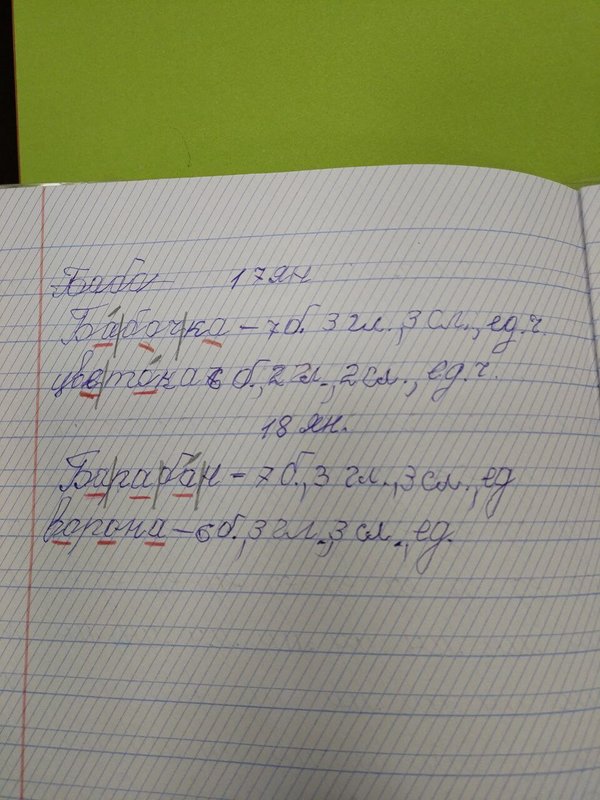 Баба 17 ян
Ба́|боч|ка – 7 б. 3 гл., 3 сл., ед. ч.
цве|то́к 6 б., 2 гл., 2 сл., ед. ч.
18 ян.
Ба|ра|ба́н – 7 б., 3 гл., 3 сл., ед
ворона – 6 б., 3 гл., 3 сл., ед.